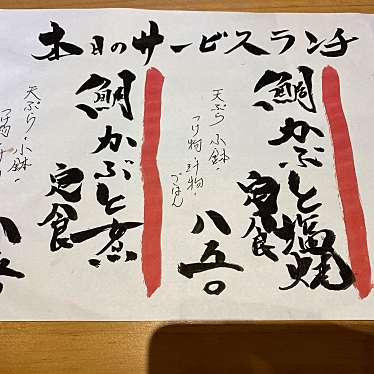 本日のサービスランチ
鯛かぶと塩焼
定食
天ぷら・小鉢・
つけ物・汁物・
ごはん
八五〇
鯛かぶと煮
定食
天ぷら・小鉢・